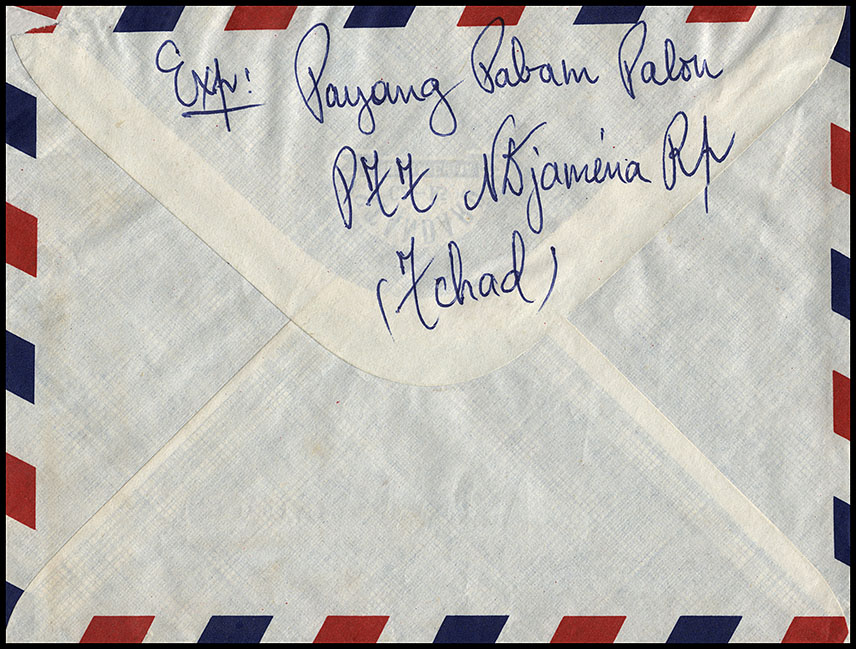 Exp: Payang Pabam Palou
PTT NDjaména Rp
(Tchad)